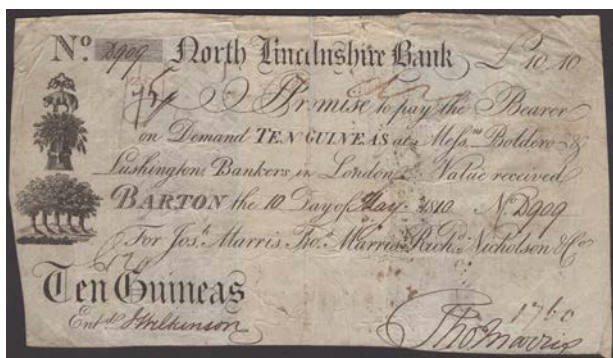 No. D909 North Lincolnshire Bank £ 10.10
I Promise to pay the Bearer
on Demand TEN GUINEAS at Messrs. Boldero &
Lushington, Bankers, in London. Value received
BARTON the 10 Day of May 1810. No. D909
For Josh. Marris, Thos. Marris, Richd. Nicholson & Co
Ten Guineas
1760
Entd. J Wilkinson
Tho Marris